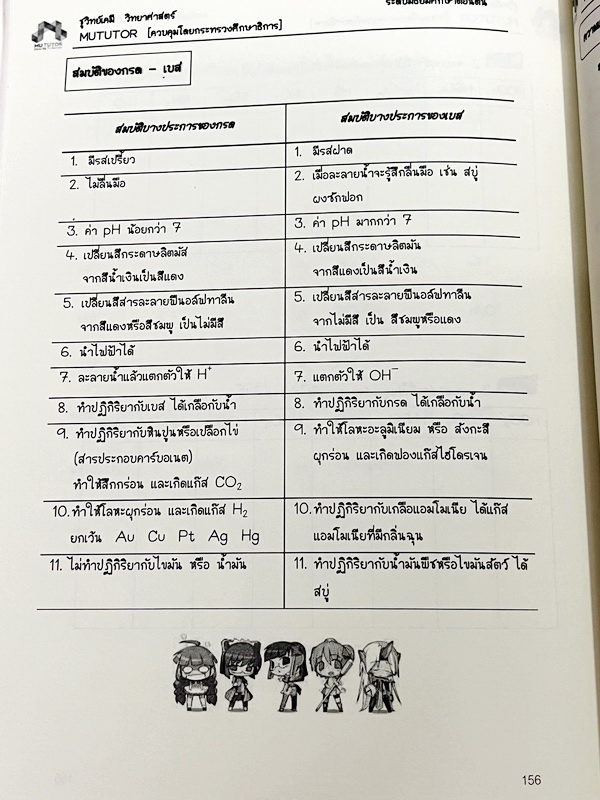 ระดับมัธยมศึกษาตอนต้น
ชีววิทย์เคมี วิทยาศาสตร์
MUTUTOR [ควบคุมโดยกระทรวงศึกษาธิการ]
MUTUTOR
สมบัติของกรด - เบส
สมบัติบางประการของกรด
สมบัติบางประการของเบส
1. มีรสเปรี้ยว
1. มีรสฝาด
2. ไม่ลื่นมือ
2. เมื่อละลายน้ำจะรู้สึกลื่นมือ เช่น สบู่
ผงซักฟอก
3. ค่า pH น้อยกว่า 7
3. ค่า pH มากกว่า 7
4. เปลี่ยนสีกระดาษลิตมัส
จากสีน้ำเงินเป็นสีแดง
4. เปลี่ยนสีกระดาษลิตมัน
จากสีแดงเป็นสีน้ำเงิน
5. เปลี่ยนสีสารละลายฟีนอล์ฟทาลีน
จากสีแดงหรือสีชมพู เป็นไม่มีสี
5. เปลี่ยนสีสารละลายฟีนอล์ฟทาลีน
จากไม่มีสี เป็น สีชมพูหรือแดง
6. นำไฟฟ้าได้
6. นำไฟฟ้าได้
7. ละลายน้ำแล้วแตกตัวให้ H⁺
7. แตกตัวให้ OH⁻
8. ทำปฏิกิริยากับเบส ได้เกลือกับน้ำ
8. ทำปฏิกิริยากับกรด ได้เกลือกับน้ำ
9. ทำปฏิกิริยากับหินปูนหรือเปลือกไข่
(สารประกอบคาร์บอเนต)
ทำให้สึกกร่อน และเกิดแก๊ส CO₂
9. ทำให้โลหะอะลูมิเนียม หรือ สังกะสี
ผุกร่อน และเกิดฟองแก๊สไฮโดรเจน
10. ทำให้โลหะผุกร่อน และเกิดแก๊ส H₂
ยกเว้น Au Cu Pt Ag Hg
10. ทำปฏิกิริยากับเกลือแอมโมเนีย ได้แก๊ส
แอมโมเนียที่มีกลิ่นฉุน
11. ไม่ทำปฏิกิริยากับไขมัน หรือ น้ำมัน
11. ทำปฏิกิริยากับน้ำมันพืชหรือไขมันสัตว์ ได้
สบู่
156